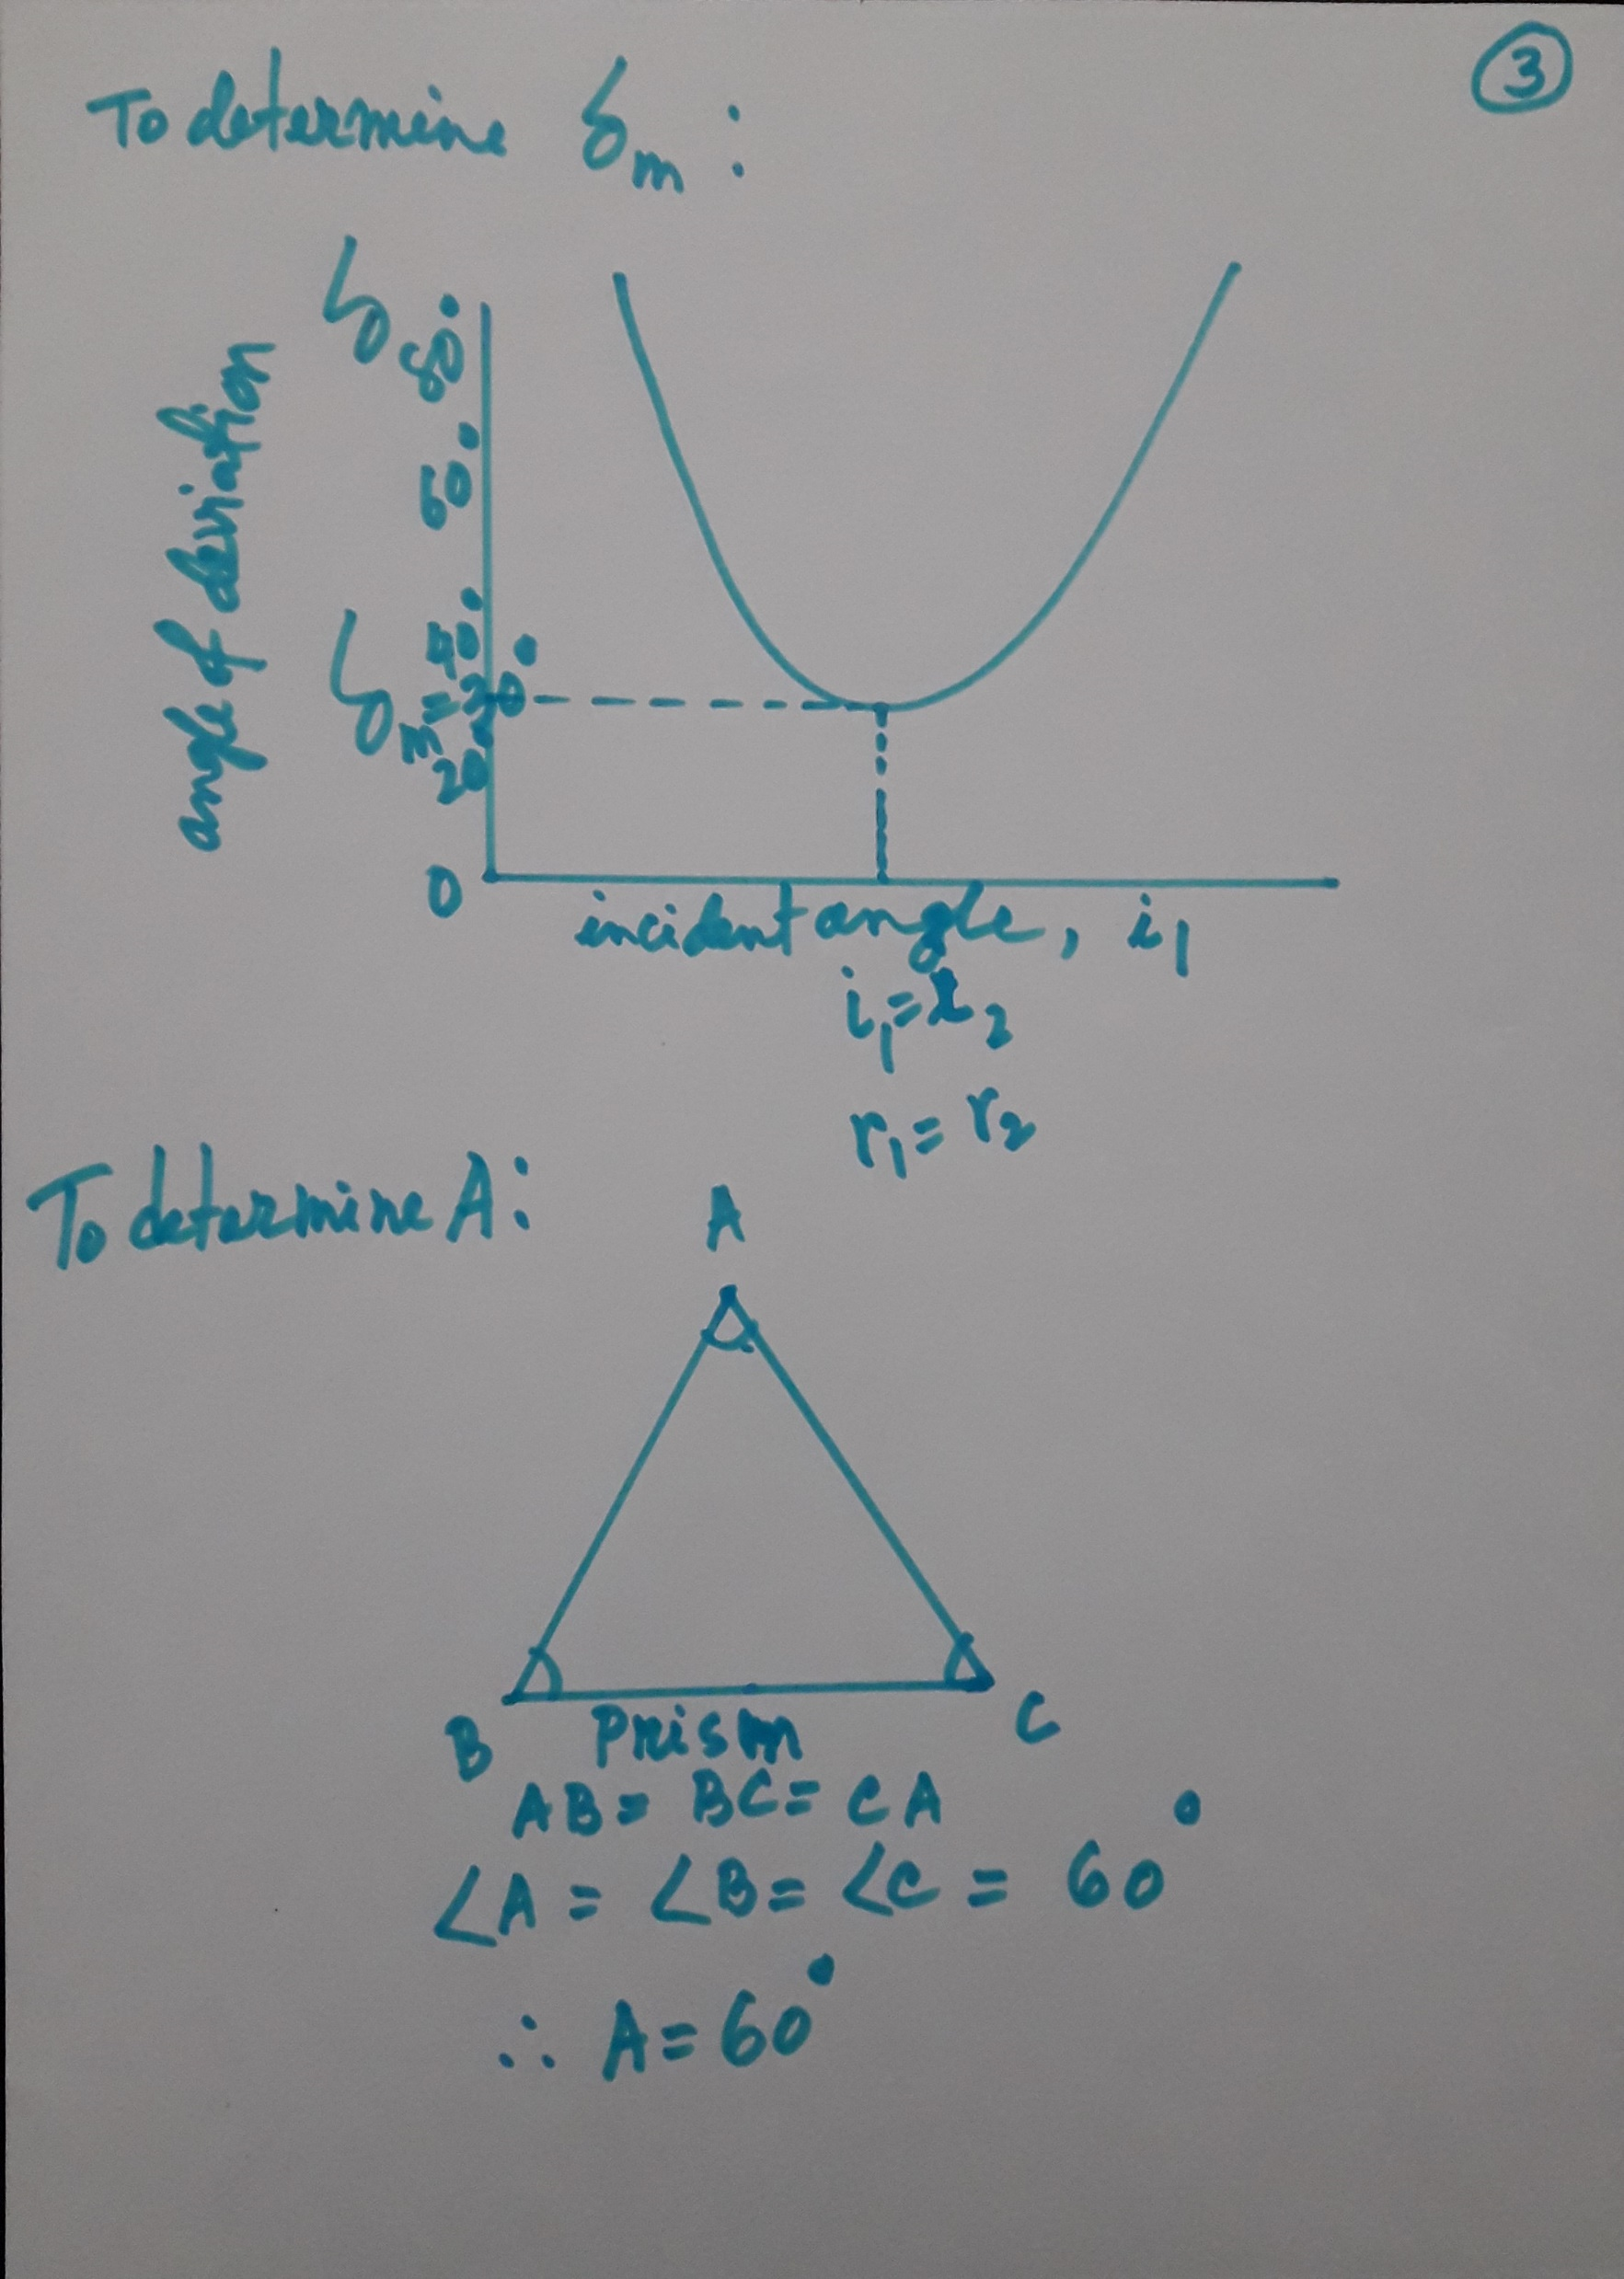 3
To determine δm :
δ
angle of deviation
80°
60°
40°
δm = 30°
20°
0
incident angle, i1
i1 = i2
r1 = r2
To determine A:
A
B
C
Prism
AB = BC = CA
∠A = ∠B = ∠C = 60°
∴ A = 60°